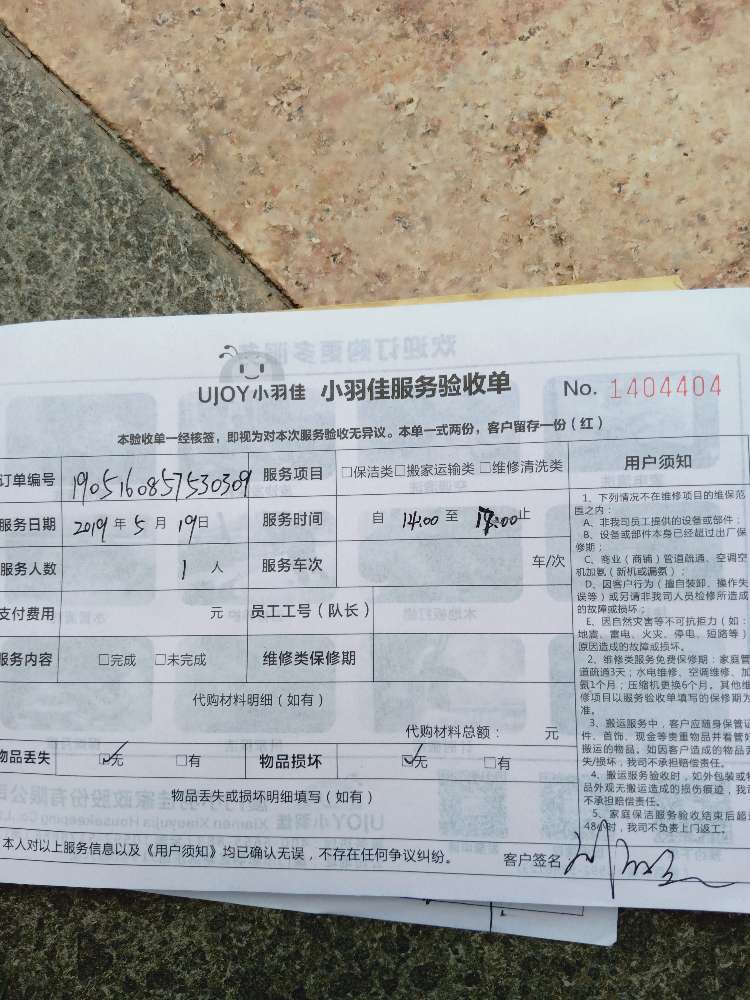 UJOY小羽佳 小羽佳服务验收单 No. 1404404
本验收单一经核签，即视为对本次服务验收无异议。本单一式两份，客户留存一份（红）
订单编号 1905160857530309 服务项目 □保洁类□搬家运输类□维修清洗类
服务日期 2019年5月19日 服务时间 自 14:00 至 17:00止
服务人数 1人 服务车次 车/次
支付费用 元 员工工号（队长）
服务内容 □完成 □未完成 维修类保修期
代购材料明细（如有）
代购材料总额： 元
物品丢失 ☑无 □有 物品损坏 ☑无 □有
物品丢失或损坏明细填写（如有）
本人对以上服务信息以及《用户须知》均已确认无误，不存在任何争议纠纷。 客户签名
用户须知
1、下列情况不在维修项目的维保范
围之内：
A、非我司员工提供的设备或部件；
B、设备或部件本身已经超过出厂保
修期；
C、商业（商铺）管道疏通、空调空
机加氨（新机或漏氨）；
D、因客户行为（擅自装卸、操作失
误等）或另请非我司人员检修所造成
的故障或损坏；
E、因自然灾害等不可抗拒力（如：
地震、雷电、火灾、停电、短路等）
原因造成的故障或损坏。
2、维修类服务免费保修期：家庭管
道疏通3天；水电维修、空调维修、加
氨1个月；压缩机更换6个月。其他维
修项目以服务验收单填写的保修期为
准。
3、搬运服务中，客户应随身保管证
件、首饰、现金等贵重物品并看管好
搬运的物品。如因客户造成的物品丢
失/损坏，我司不承担赔偿责任。
4、搬运服务验收时，如外包装或物
品外观无搬运造成的损伤痕迹，我司
不承担赔偿责任。
5、家庭保洁服务验收结束后超过
48小时，我司不负责上门返工。